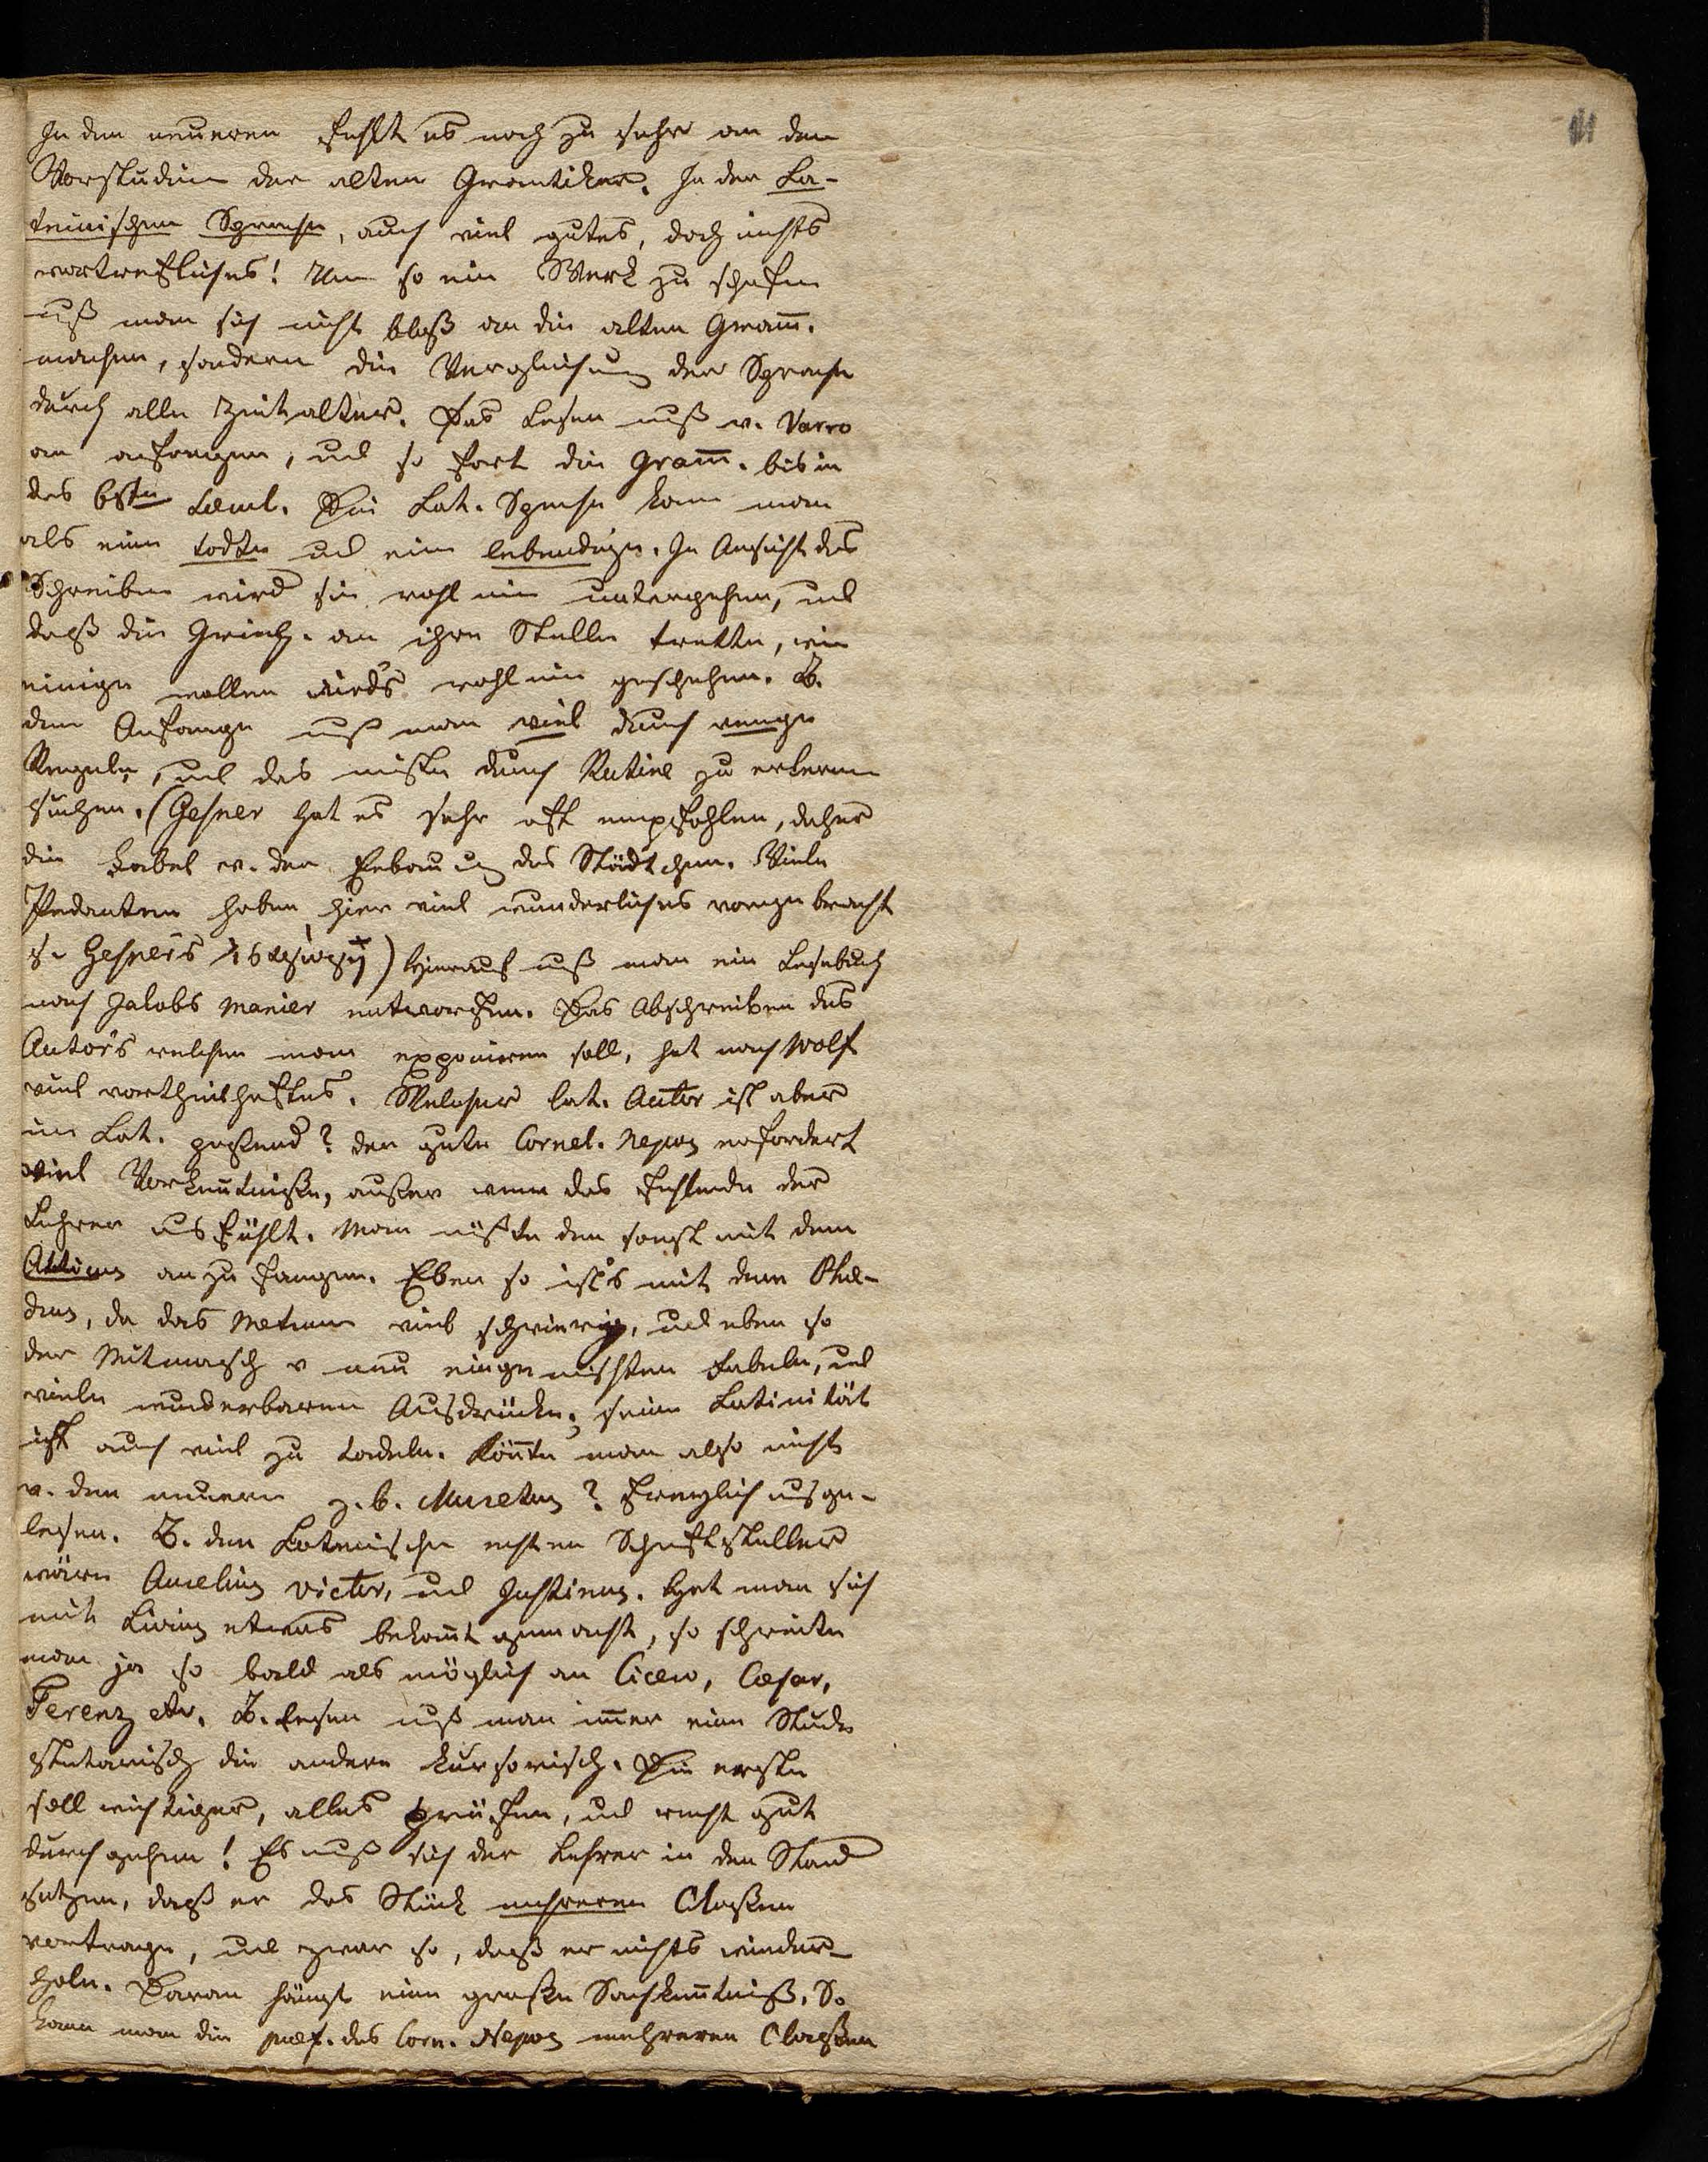 In den neueren fehlt es noch zu sehr an dem
Vorstudium der alten Gramtiker. In der La-
teinischen Sprache, auch viel gutes, doch nichts
vortrefliches! Um so ein Werk zu schafen
uß man sich nicht bloß an die alten Gram̄.
machen, sondern die Vergleichung der Sprache
durch alle Zeitalter. Das Lesen muß v. Varro
an anfangen, und so fort die Gram̄. bis in
das 6ste Die Lat. Sprache kann man
als eine todte und eine lebendige. In Ansicht des
Schreiben wird sie wohl nie untergehen, und
daß die Griech. an ihre Stelle trette, wie
einige wollen wirds wohl nie geschehen. Z.
dem Anfange muß man viel durch wenige
Regeln, und das meiste durch Rutine zu erlernen
suchen. (Gesner hat es sehr oft empfohlen, daher
die Fabel v. der Erbauung des Städtchen. Viele
Pedanten haben hier viel wunderliches vorgebracht
s. Gesners ) Hierauf muß man ein Lesebuch
nach Jakobs Manier entworfen. Das Abschreiben des
Autors welchen man exponieren soll, hat nach Wolf
viel vortheilhaftes. Welcher lat. Autor ist aber
im Lat. passend? der gute Cornel. Nepos erfordert
viel Vorkentniße, außer wenn das fehlende der
Lehrer ausfühlt. Man müßte den sonst mit dem
Atticus anzufangen. Eben so ist's mit dem Phæ-
drus, da das Metrum viel schwierig, und eben so
der Mitmasch v neu eingemischten Fabeln, und
viele wunderbaren Ausdrücke, seine Latinität
ist auch viel zu tadeln. Könnte man also nicht
v. den neuern z.b. Muretus? freylich ausge-
lesen. Z. den Lateinischen ersten Schriftsteller
wären Aurelius Victor, und Justinus. Hat man sich
mit Livius etwas bekannt gemacht, so schreite
man ja so bald als möglich an Cicero, Cæsar,
Terenz etc. Z. Lesen muß man immer eine Stunde
statarisch die andere kursorisch. Die erste
soll wichtiger, alles prüfen, und recht gut
durchgehen! Es muß sich der Lehrer in den Stand
setzen, daß er das Stück mehreren Claßen
vortrage, und zwar so, daß er nichts wieder-
hole. Daran hängt eine große Sachkentniß. So
kann man die præf. des Corn. Nepos mehreren Claßen